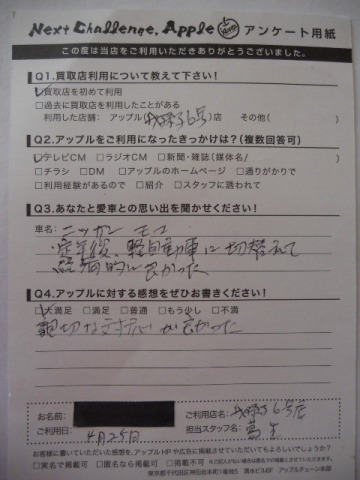 Next Challenge, Apple アンケート用紙
この度は当店をご利用いただきありがとうございました。
Q1.買取店利用について教えて下さい!
☑買取店を初めて利用
□過去に買取店を利用したことがある
利用した店舗: アップル(我孫子6号)店 その他( )
Q2.アップルをご利用になったきっかけは?(複数回答可)
☑テレビCM □ラジオCM □新聞・雑誌(媒体名/ )
□チラシ □DM □アップルのホームページ □通りがかりで
□利用経験があるので □紹介 □スタッフに誘われて
Q3.あなたと愛車との思い出を聞かせください!
車名: ニッサン モコ
・定年後、軽自動車に切替えて
経済的に良かった
Q4.アップルに対する感想をぜひお書きください!
☑大満足 □満足 □普通 □もう少し □不満
親切な対応が良かった
お名前: ご利用店名: 我孫子6号店
ご利用日: 4月25日 担当スタッフ名:
お客様に書いていただいた感想を、アップルHPや広告に掲載させていただいてもよろしいでしょうか?
□実名で掲載可 □匿名なら掲載可 □掲載不可
東京都千代田区神田岩本町1番地5 清水ビル8F アップルチェーン本部